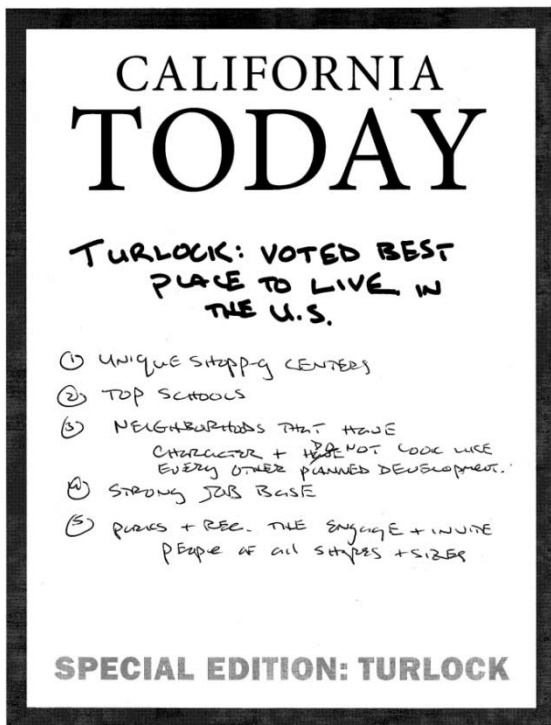 CALIFORNIA
TODAY
TURLOCK: VOTED BEST
PLACE TO LIVE IN
THE U.S.
① UNIQUE SHOPP-G CENTERS
② TOP SCHOOLS
③ NEIGHBORHOODS THAT HAVE
CHARACTER + DO NOT LOOK LIKE
EVERY OTHER PLANNED DEVELOPMENT.
④ STRONG JOB BASE
⑤ PARKS + REC. THE ENGAGE + INVITE
PEOPLE OF all SHAPES + SIZES
SPECIAL EDITION: TURLOCK